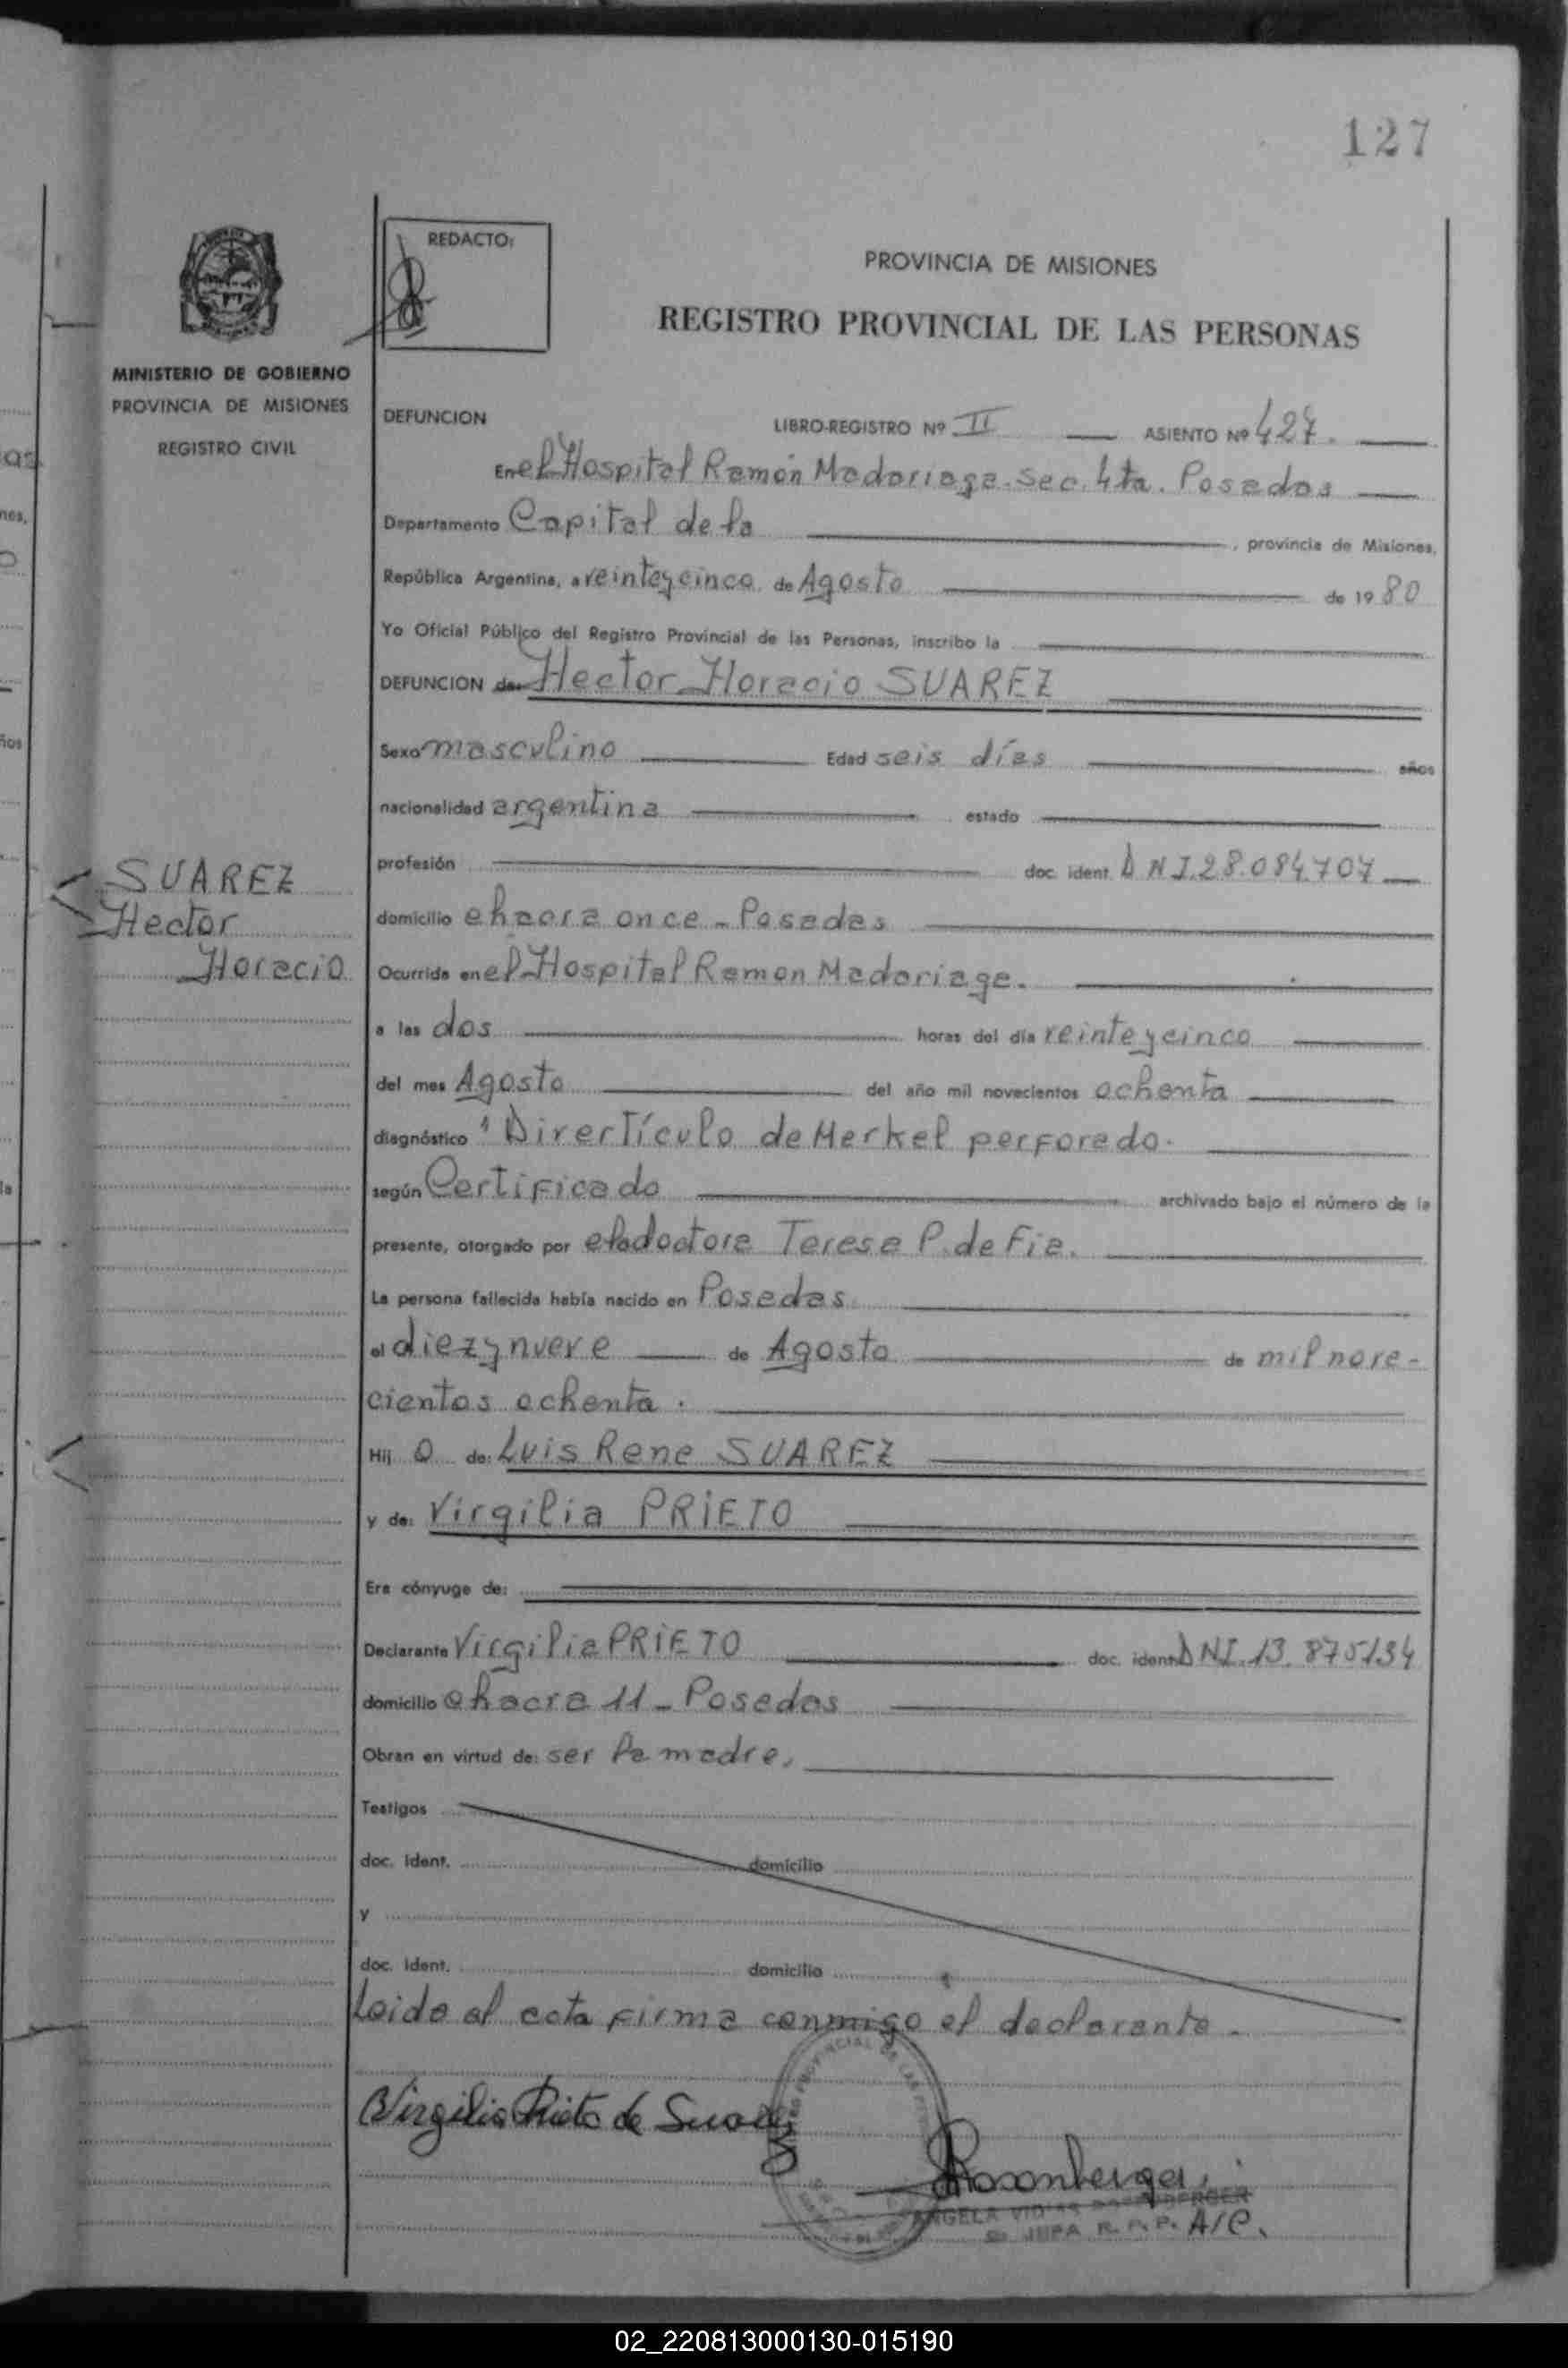 127
REDACTO:
PROVINCIA DE MISIONES
REGISTRO PROVINCIAL DE LAS PERSONAS
MINISTERIO DE GOBIERNO
PROVINCIA DE MISIONES
REGISTRO CIVIL
DEFUNCION LIBRO-REGISTRO Nº II ASIENTO Nº 427.
En el Hospital Ramón Madariaga. Sec. 4ta. Posadas
Departamento Capital de la , provincia de Misiones,
República Argentina, a veinteycinco de Agosto de 1980
Yo Oficial Público del Registro Provincial de las Personas, inscribo la
DEFUNCION de: Hector Horacio SUAREZ
Sexo masculino Edad seis días años
nacionalidad argentina estado
profesión doc. ident. DNI.28.084.707
SUAREZ
Hector
Horacio
domicilio chacra once - Posadas
Ocurrida en el Hospital Ramon Madariaga.
a las dos horas del día veinteycinco
del mes Agosto del año mil novecientos ochenta
diagnóstico Divertículo de Merkel perforado.
según Certificado archivado bajo el número de la
presente, otorgado por el doctora Teresa P. de Fia.
La persona fallecida había nacido en Posadas
el diezynueve de Agosto de mil nove-
cientos ochenta.
Hij o de: Luis Rene SUAREZ
y de: Virgilia PRIETO
Era cónyuge de:
Declarante Virgilia PRIETO doc. ident. DNI.13.875134
domicilio chacra 11 - Posadas
Obran en virtud de: ser la madre.
Testigos
doc. ident. domicilio
y
doc. ident. domicilio
Leida al acta firma conmigo el declarante.
Virgilia Prieto de Suarez
Rosenberger
ANGELA ROSENBERGER
JEFA R. P. P. A/C.
02_220813000130-015190